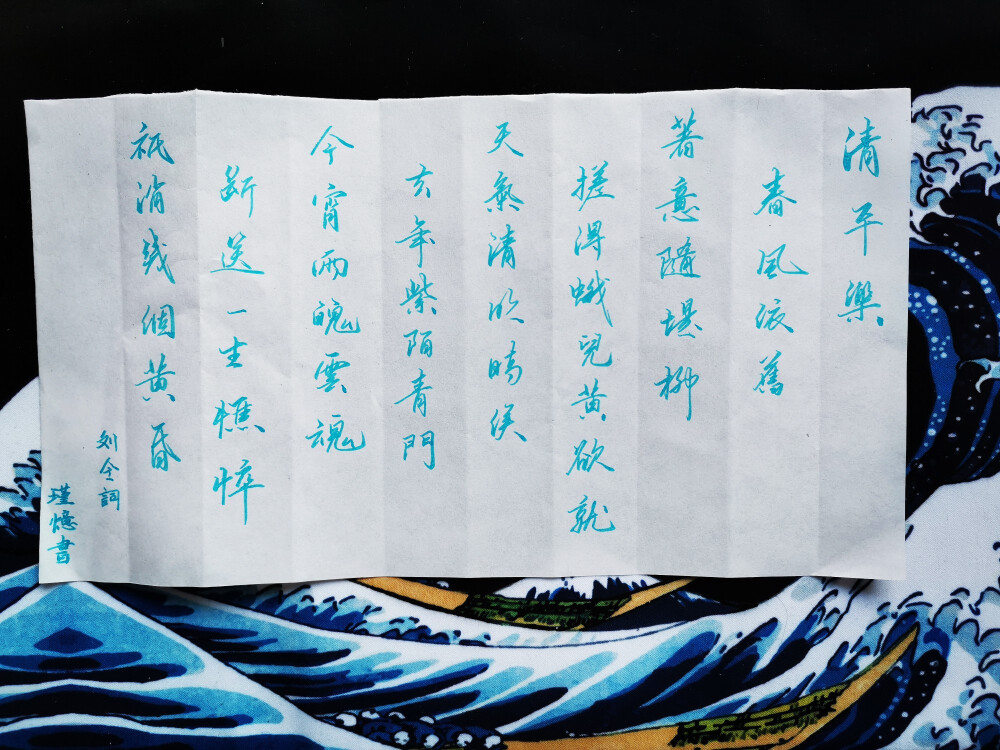 清平樂
春風依舊
著意隨堤柳
搓得蛾兒黄欲就
天氣清明時候
去年紫陌青門
今宵雨魄雲魂
斷送一生憔悴
祇消幾個黄昏
刘弇詞
瑾憶書